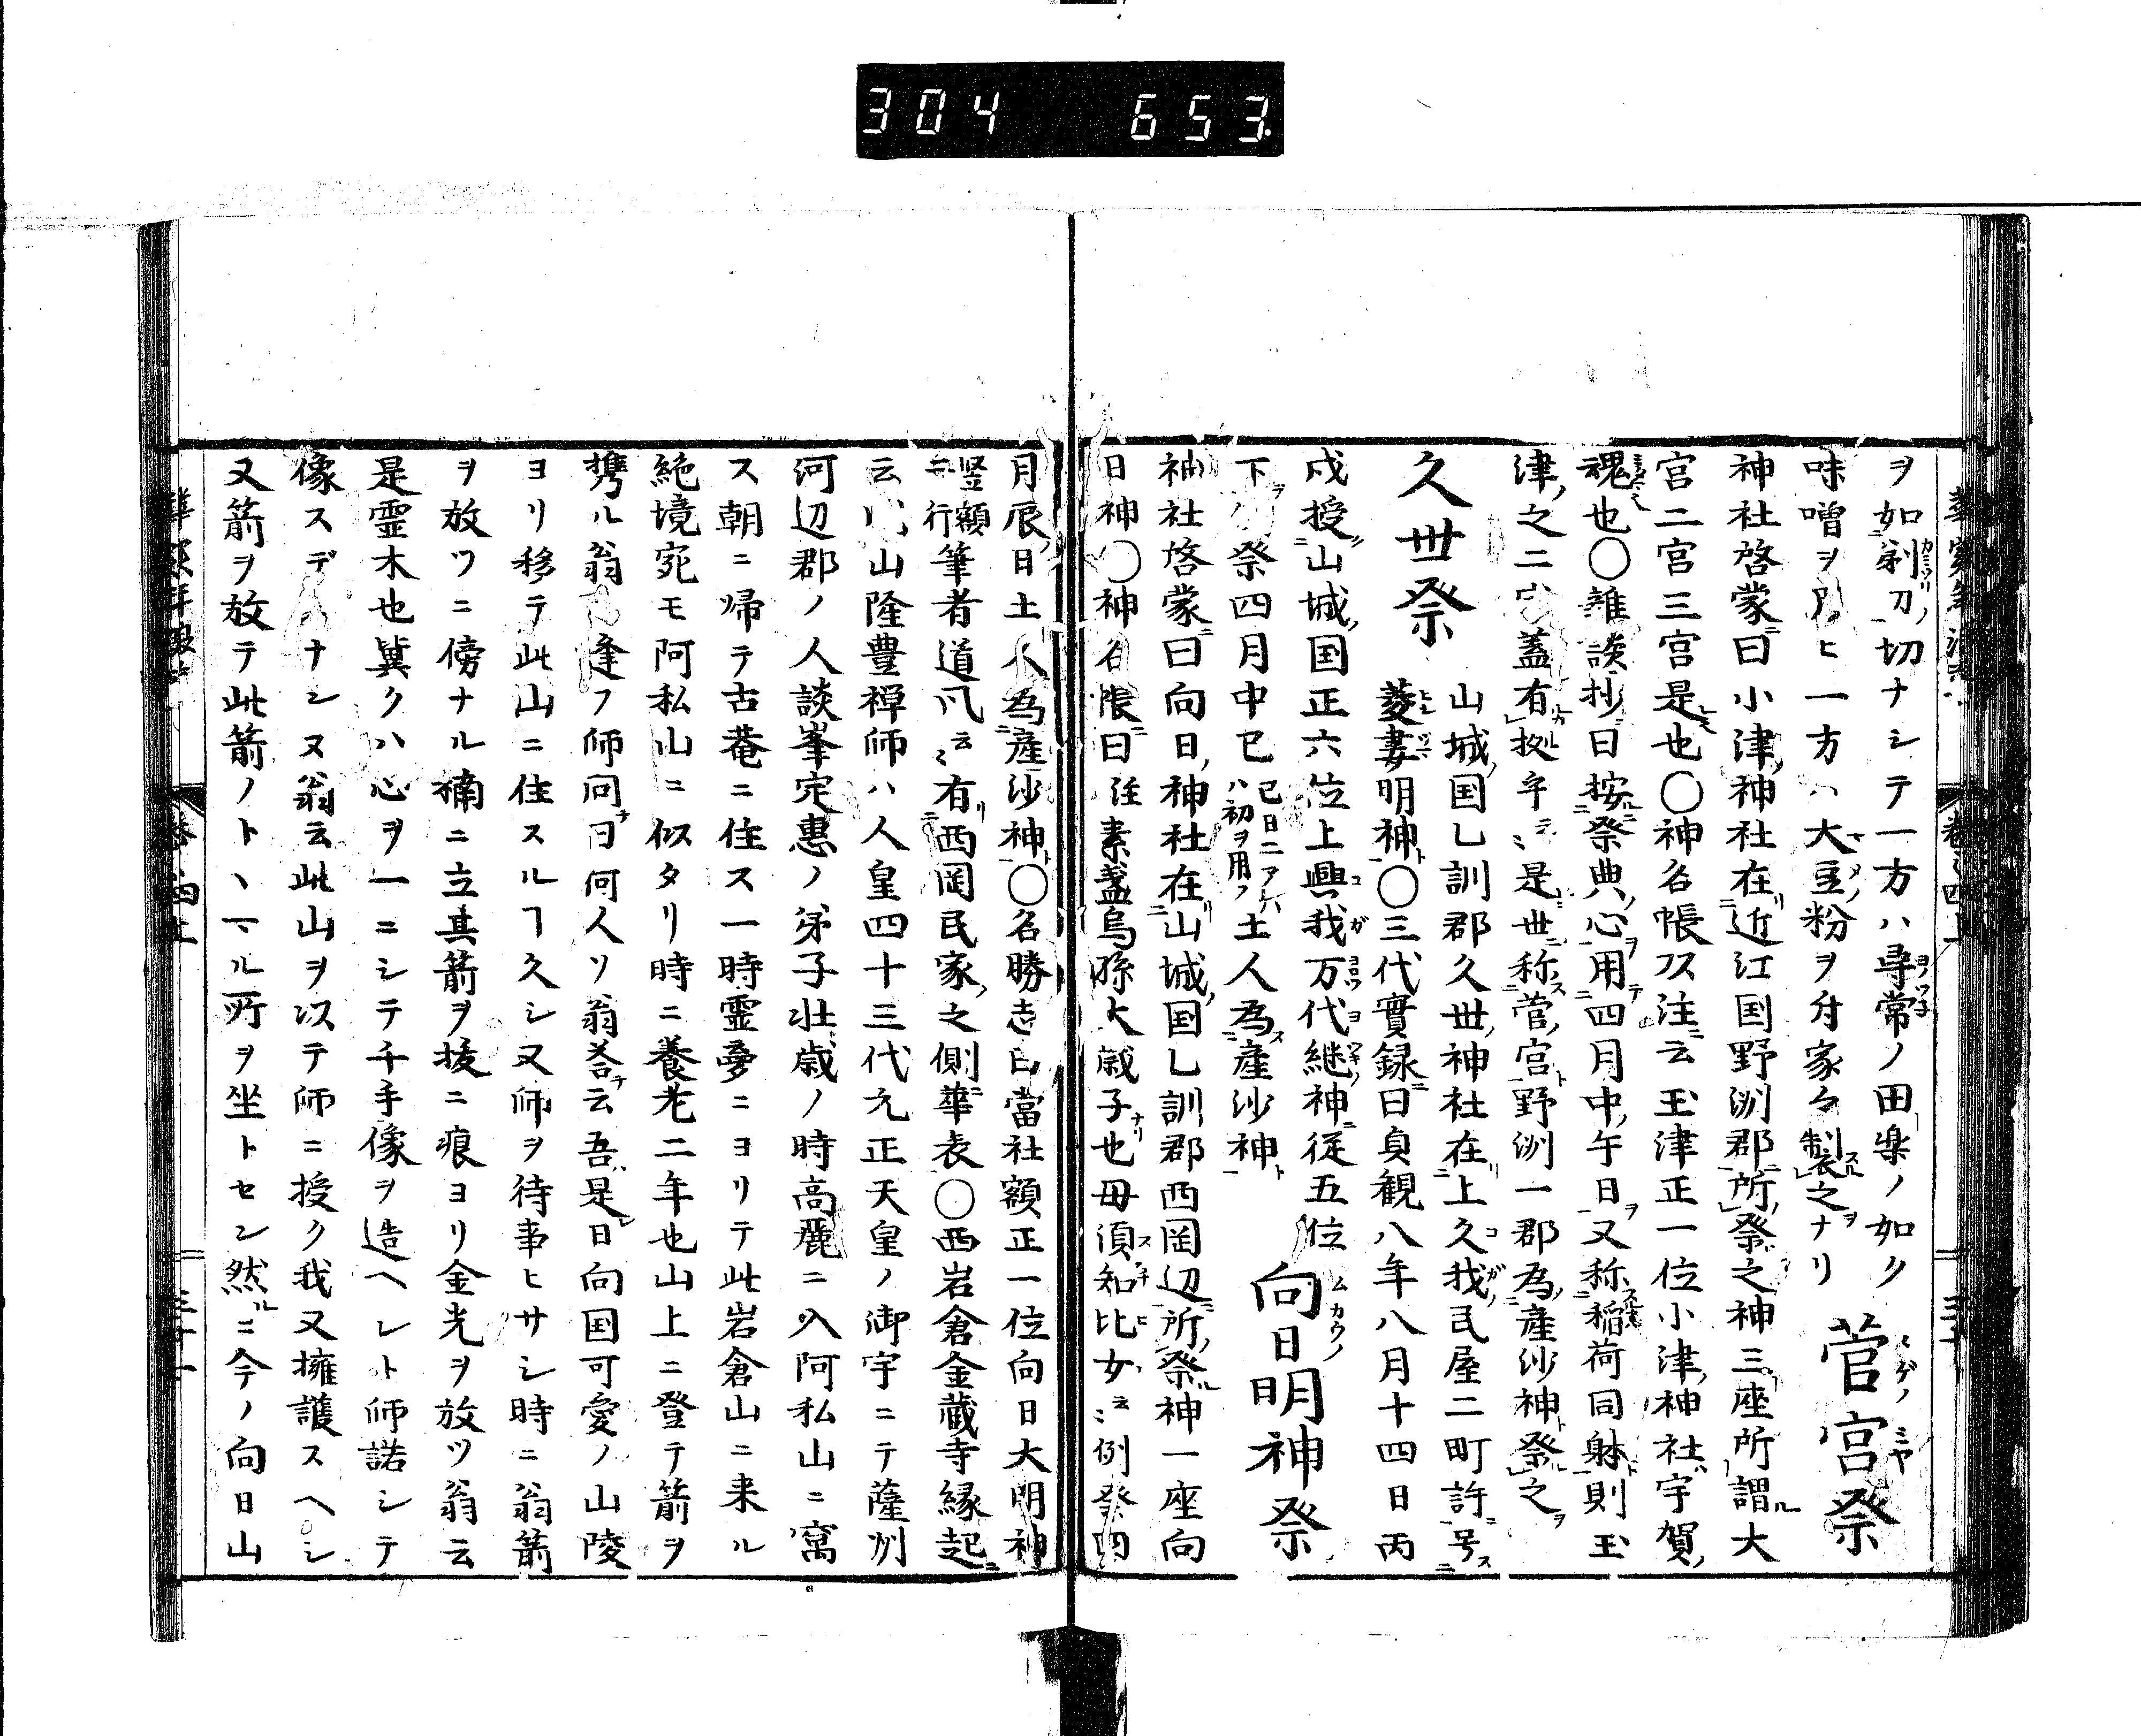 304 653
ヲ如剃刀切ナシテ一方ハ尋常ノ田楽ノ如ク 菅宮祭
味噌ヲ用ヒ一方ハ大豆粉ヲ舟家々製之ナリ
神社啓蒙曰小津神社在近江国野洲郡所祭之神三座所謂大
宮二宮三宮是也〇神名帳又注云玉津正一位小津神社宇賀
魂也〇雑談抄曰按祭典心用四月中午日又称稲荷同躰則玉
津之二 蓋有拠乎云云是世称菅宮野洲一郡為産沙神祭之
久世祭 山城国乙訓郡久世神社在上久我民屋二町許号
菱妻明神〇三代實録曰貞観八年八月十四日丙
戌授山城国正六位上興我万代継神従五位
下 祭四月中巳 巳日ニアレハ初ヲ用フ 土人為産沙神 向日明神祭
神社啓蒙曰向日神社在山城国乙訓郡西岡辺所祭神一座向
日神〇神名帳曰注素盞烏孫大歳子也母須知比女云云例祭四
月辰日土人為産沙神〇名勝志曰當社額正一位向日大明神
竪額二行筆者道風云云有西岡民家之側華表〇西岩倉金蔵寺縁起
云 山隆豊禅師ハ人皇四十三代元正天皇ノ御宇ニテ薩州
河辺郡ノ人談峯定惠ノ弟子壮歳ノ時高麗ニ入阿私山ニ寓
ス朝ニ帰テ古菴ニ住ス一時霊夢ニヨリテ此岩倉山ニ来ル
絶境宛モ阿私山ニ似タリ時ニ養老二年也山上ニ登テ箭ヲ
携ル翁 逢フ師問曰何人ソ翁荅云吾是日向国可愛ノ山陵
ヨリ移テ此山ニ住スルヿ久シ又師ヲ待事ヒサシ時ニ翁箭
ヲ放ツニ傍ナル楠ニ立其箭ヲ抜ニ痕ヨリ金光ヲ放ツ翁云
是霊木也冀クハ心ヲ一ニシテ千手像ヲ造ヘレト師諾シテ
像スデ ナシヌ翁云此山ヲ以テ師ニ授ク我又擁護スヘシ
又箭ヲ放テ此箭ノトヽマル所ヲ坐トセン然ルニ今ノ向日山